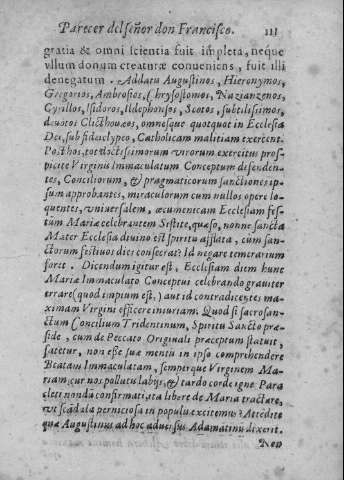 Parecer del señor don Francisco. 111
gratia & omni scientia fuit impleta, neque
vllum donum creaturæ conueniens, fuit illi
denegatum. Addam Augustinos, Hieronymos,
Gregorios, Ambrosios, Chrysostomos, Nazianzenos,
Cyrillos, Isidoros, Ildephonsos, Scotos, subtilissimos,
deuotos Clicthoueos, omnesque quotquot in Ecclesia
Dei, sub fidei clypeo, Catholicam malitiam exercent.
Post hos, tot doctissimorum virorum exercitus pros-
picite Virginis Immaculatum Conceptum defenden-
tes, Conciliorum, & pragmaticorum sanctiones ip-
sum approbantes, miraculorum cum nullos opere lo-
quentes, vniuersalem, œcumenicam Ecclesiam fes-
tũm Mariæ celebrantem Sestite, quæso, nonne sancta
Mater Ecclesia diuino est spiritu afflata, cùm san-
ctorum festiuos dies consecrat? Id negare temerarium
foret. Dicendum igitur est, Ecclesiam diem hunc
Mariæ Immaculato Conceptui celebrando grauiter
errare (quod impium est,) aut id contradicentes ma-
ximam Virgini efficere iniuriam. Quod si sacrosan-
ctum Concilium Tridentinum, Spiritu Sancto præ-
side, cum de Peccato Originali præceptum statuit,
fatetur, non esse suæ mentis in ipso comprehendere
Beatam Immaculatam, semperque Virginem Ma-
riam, cur nos pollutu labijs, & tardo corde igne Para-
cleti nondũ confirmati, ita libere de Maria tractare,
vt scãdala perniciosa in populis excitemus? Attẽdite
quæ Augustinus ad hoc aduersus Adamatinũ dixerit.
Non